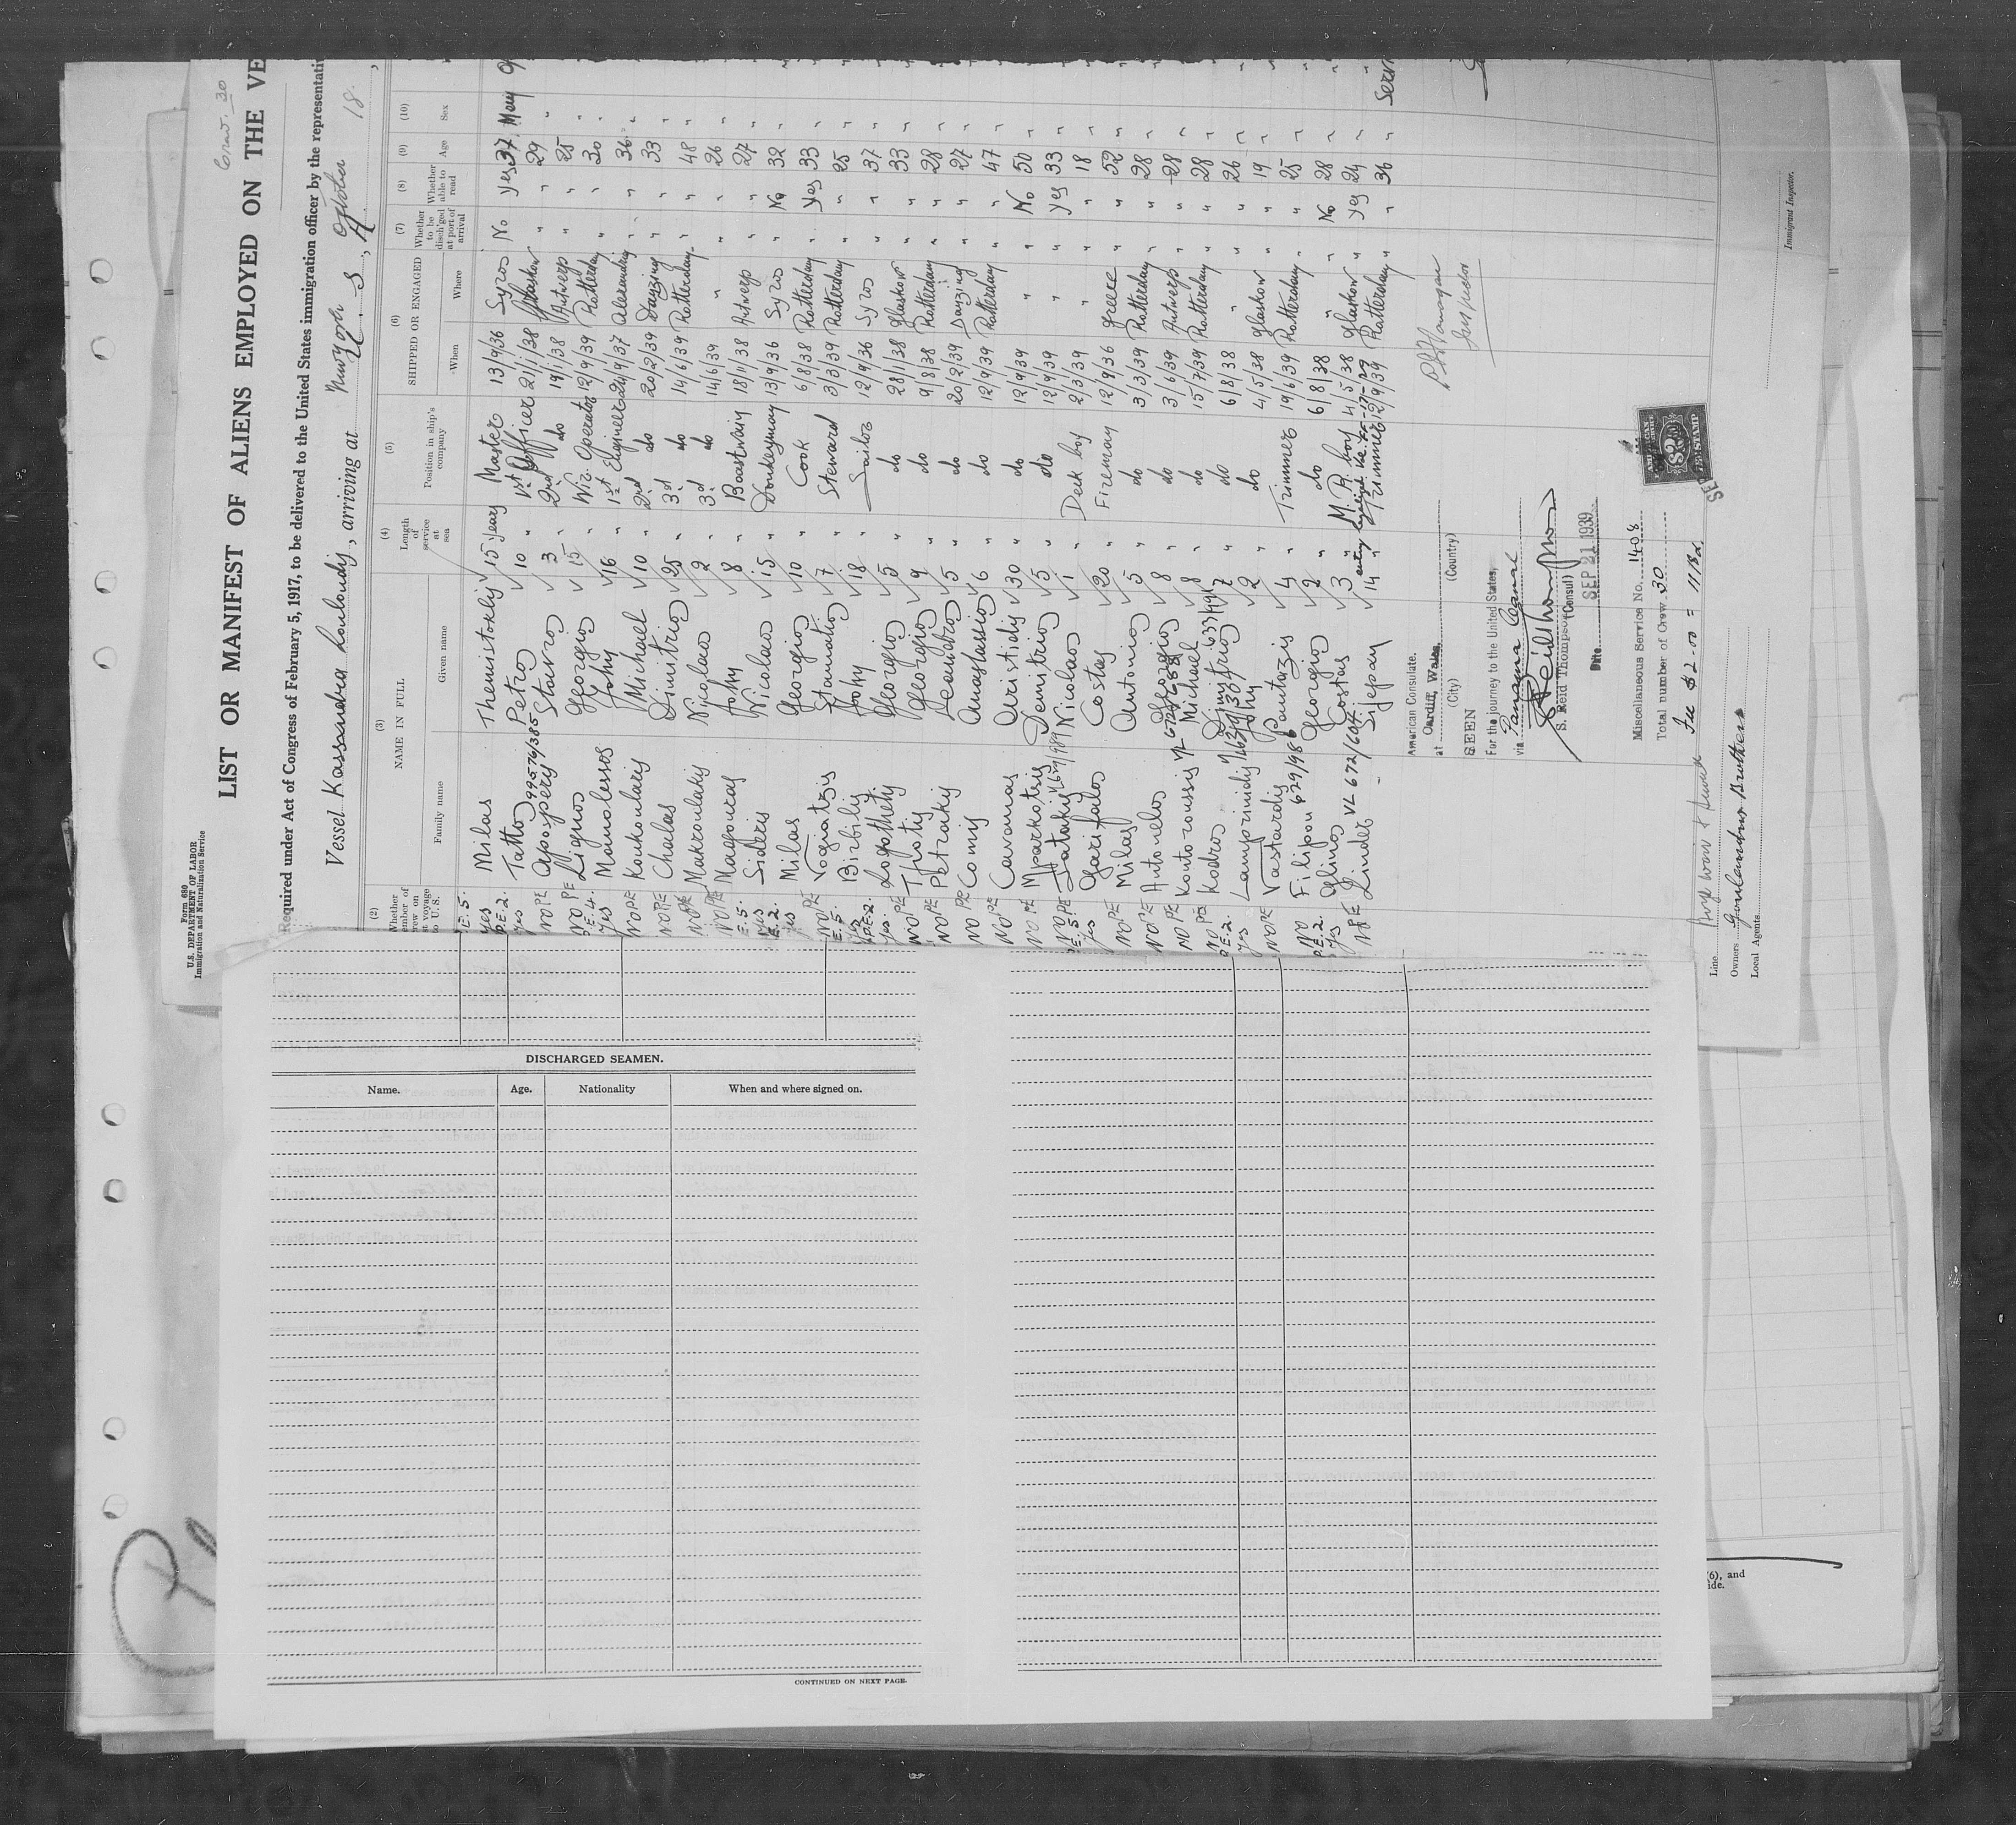 Form 680
U.S. DEPARTMENT OF LABOR
Immigration and Naturalization Service
Crew. 30
LIST OR MANIFEST OF ALIENS EMPLOYED ON THE VE
Required under Act of Congress of February 5, 1917, to be delivered to the United States immigration officer by the representativ
Vessel Kassandra Louloudy, arriving at New York October 18,
U. S. A.
(2) (3) (4) (5) (6) (7) (8) (9) (10)
NAME IN FULL SHIPPED OR ENGAGED
Family name Given name Length of service at sea Position in ship's company When Where Whether to be disch'ged at port of arrival Whether able to read Age Sex
P.E. 5. yes Milas Themistoklis 15 years Master 13/9/36 Syros No yes 37 Man
P.E. 2. yes Tatto Petros 10 " 1st Officer 21/1/38 Glaskow " " 29 "
99576/385
NO PE Apoyperis Stavros 3 " 2nd do 19/1/38 Antwerp " " 25 "
NO PE Lignos Georgios 15 " Wir. Operator 12/9/39 Rotterdam " " 30 "
P.E. 4. yes Manolessos John 16 " 1st Engineer 24/9/37 Alexandria " " 36 "
NO PE Koukoularis Michael 10 " 2nd do 20/2/39 Danzing " " 33 "
NO PE Chalas Dimitrios 25 " 3d do 14/6/39 Rotterdam " " 48 "
NO PE Makroulakis Nicolaos 2 " 3d do 14/6/39 " " " 26 "
NO PE Magouras John 8 " Boastwain 18/11/38 Antwerp " " 27 "
P.E. 5. yes Sideris Nicolaos 15 " Donkeyman 13/9/36 Syros " No 32 "
P.E. 2. yes Milas Georgios 10 " Cook 6/8/38 Rotterdam " yes 33 "
NO PE Vogiatzis Stamatios 7 " Steward 3/3/39 Rotterdam " " 25 "
P.E. 5. yes Birbilis John 18 " Sailor 12/9/36 Syros " " 37 "
P.E. 2. yes Logothetis Georgios 5 " do 28/1/38 Glaskow " " 33 "
NO PE Tfiotis Georgios 9 " do 9/8/38 Rotterdam " " 28 "
NO PE Petrakis Leonidas 5 " do 20/2/39 Danzing " " 27 "
NO PE Comis Anastassios 6 " do 12/9/39 Rotterdam " " 47 "
NO PE Cavounas Aristidis 30 " do 12/9/39 " " No 50 "
NO PE Mparkotsis Demitrios 5 " do 12/9/39 " " yes 33 "
NO PE Fatakis Nicolaos 1 " Deck boy 2/3/39 " " " 18 "
P.E. 5. yes Garifalos Costas 20 " Fireman 12/9/36 Greece " " 52 "
NO PE Milas Antonios 5 " do 3/3/39 Rotterdam " " 28 "
NO PE Antonelos Georgios 8 " do 3/6/39 Antwerp " " 28 "
NO PE Kontoroussis Michael 8 " do 15/7/39 Rotterdam " " 28 "
NO PE Kodros Dimitrios 7 " do 6/8/38 " " " 26 "
P.E. 2. yes Lamprinidis John 2 " do 4/5/38 Glaskow " " 19 "
NO PE Vastardis Pantazis 4 " Trimmer 19/6/39 Rotterdam " " 25 "
NO Filipou Georgios 2 " do 6/8/38 " " No 28 "
629/98
P.E. 2. yes Glinos Costas 3 " M. R. boy 4/5/38 Glaskow " yes 24 "
NO PE Linder Stepan 14 " Trimmer 12/9/39 Rotterdam " " 36 "
VL 672/604
Serv
Inspector
American Consulate.
at Cardiff, Wales.
(City) (Country)
SEEN
For the journey to the United States,
via Panama Canal
S. Reid Thompson
S. Reid Thompson (Consul)
Date SEP 21 1939
Miscellaneous Service No. 1408
Total number of Crew 30
Fee $2.00 =
AMERICAN
$2
FEE STAMP
SEP
Line
Owners Goulandris Brothers
Local Agents
Immigrant Inspector.
DISCHARGED SEAMEN.
Name. Age. Nationality When and where signed on.
CONTINUED ON NEXT PAGE.
(6), and
ide.